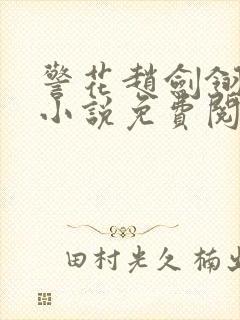 警花趙劍釼
小說免費閱
田村光久 楠出